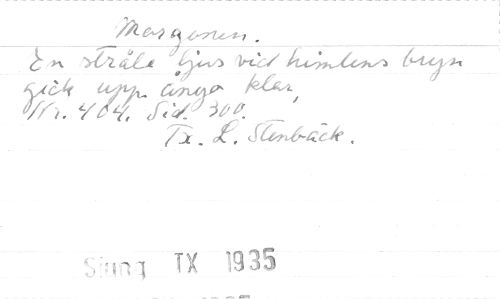 Morgonen.
En stråle ljus vid himlens bryn
gick upp ånyo klar,
Nr. 404. Sid. 300.
Tx. L. Stenbäck.
Sjung TX 1935